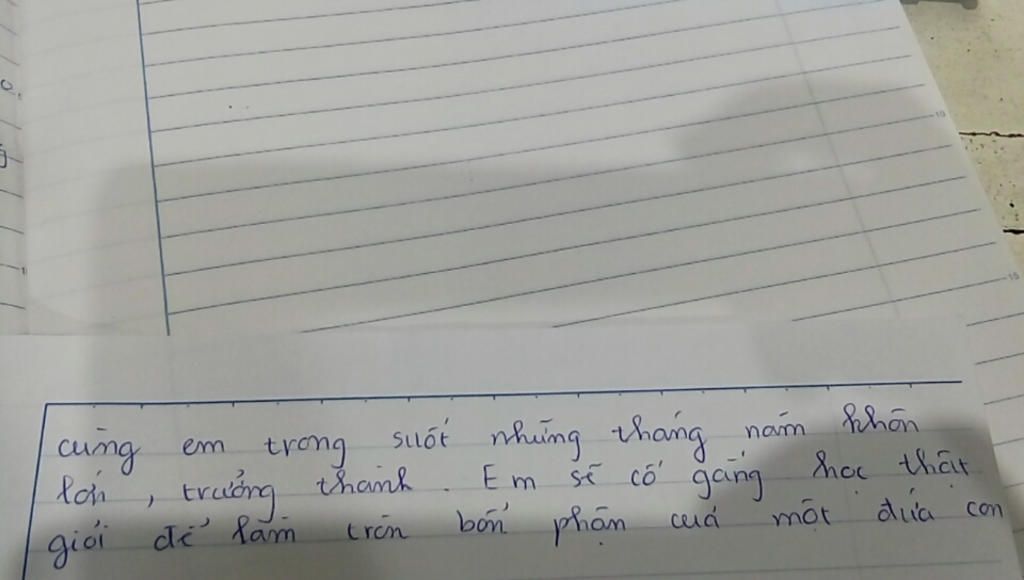 cùng em trong suốt những tháng năm khôn
lớn, trưởng thành. Em sẽ cố gắng học thật
giỏi để làm tròn bổn phận của một đứa con
10
15